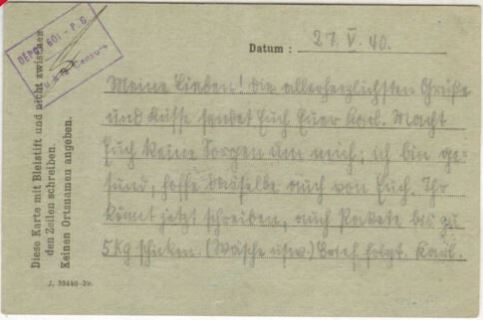 DÉPOT 601 - P. G.
Datum : 27. V. 40.
Meine Lieben! Die allerherzlichsten Grüße
und Küsse sendet Euch Euer Karl. Macht
Euch keine Sorgen um mich; ich bin ge-
sund, hoffe dasselbe auch von Euch. Ihr
könnt jetzt schreiben, auch Pakete bis zu
5 Kg schicken. (Wäsche usw.) Brief folgt. Karl.
Diese Karte mit Bleistift und nicht zwischen
den Zeilen schreiben.
Keinen Ortsnamen angeben.